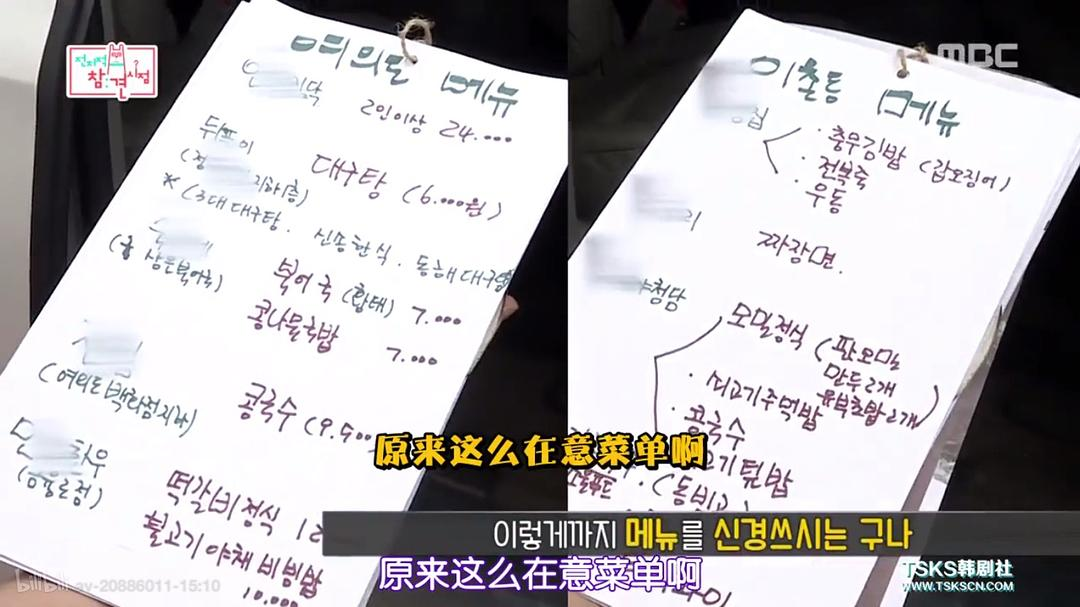 전지적
참견시점
MBC
여의도 메뉴
닭
2인이상 24.000
두프이
지하1층)
대구탕 (6.000원)
* (3대 대구탕. 신송한식. 동해대구탕
북어국 (황태) 7.000
콩나물국밥 7.000
콩국수 (9.500
(여의도백화점지하)
하우
(금융로점)
떡갈비정식 12
불고기야채비빔밥
10.000
이촌동 메뉴
· 충무김밥 (갑오징어)
· 전복죽
· 우동
리
짜장면.
청담
모밀정식 (판모밀
만두2개
유부초밥2개)
· 쇠고기주먹밥
· 콩국수
기튀밥
소울푸드
原来这么在意菜单啊
이렇게까지 메뉴를 신경쓰시는 구나
原来这么在意菜单啊
bilibili av-20886011-15:10
TSKS韩剧社
WWW.TSKSCN.COM